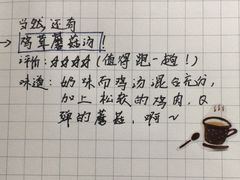 当然，还有
→鸡茸蘑菇汤！
评价：☆☆☆☆（值得跑一趟！）
味道：奶味和鸡汤混合充分，
加上松软的鸡肉，Q
弹的蘑菇，啊～